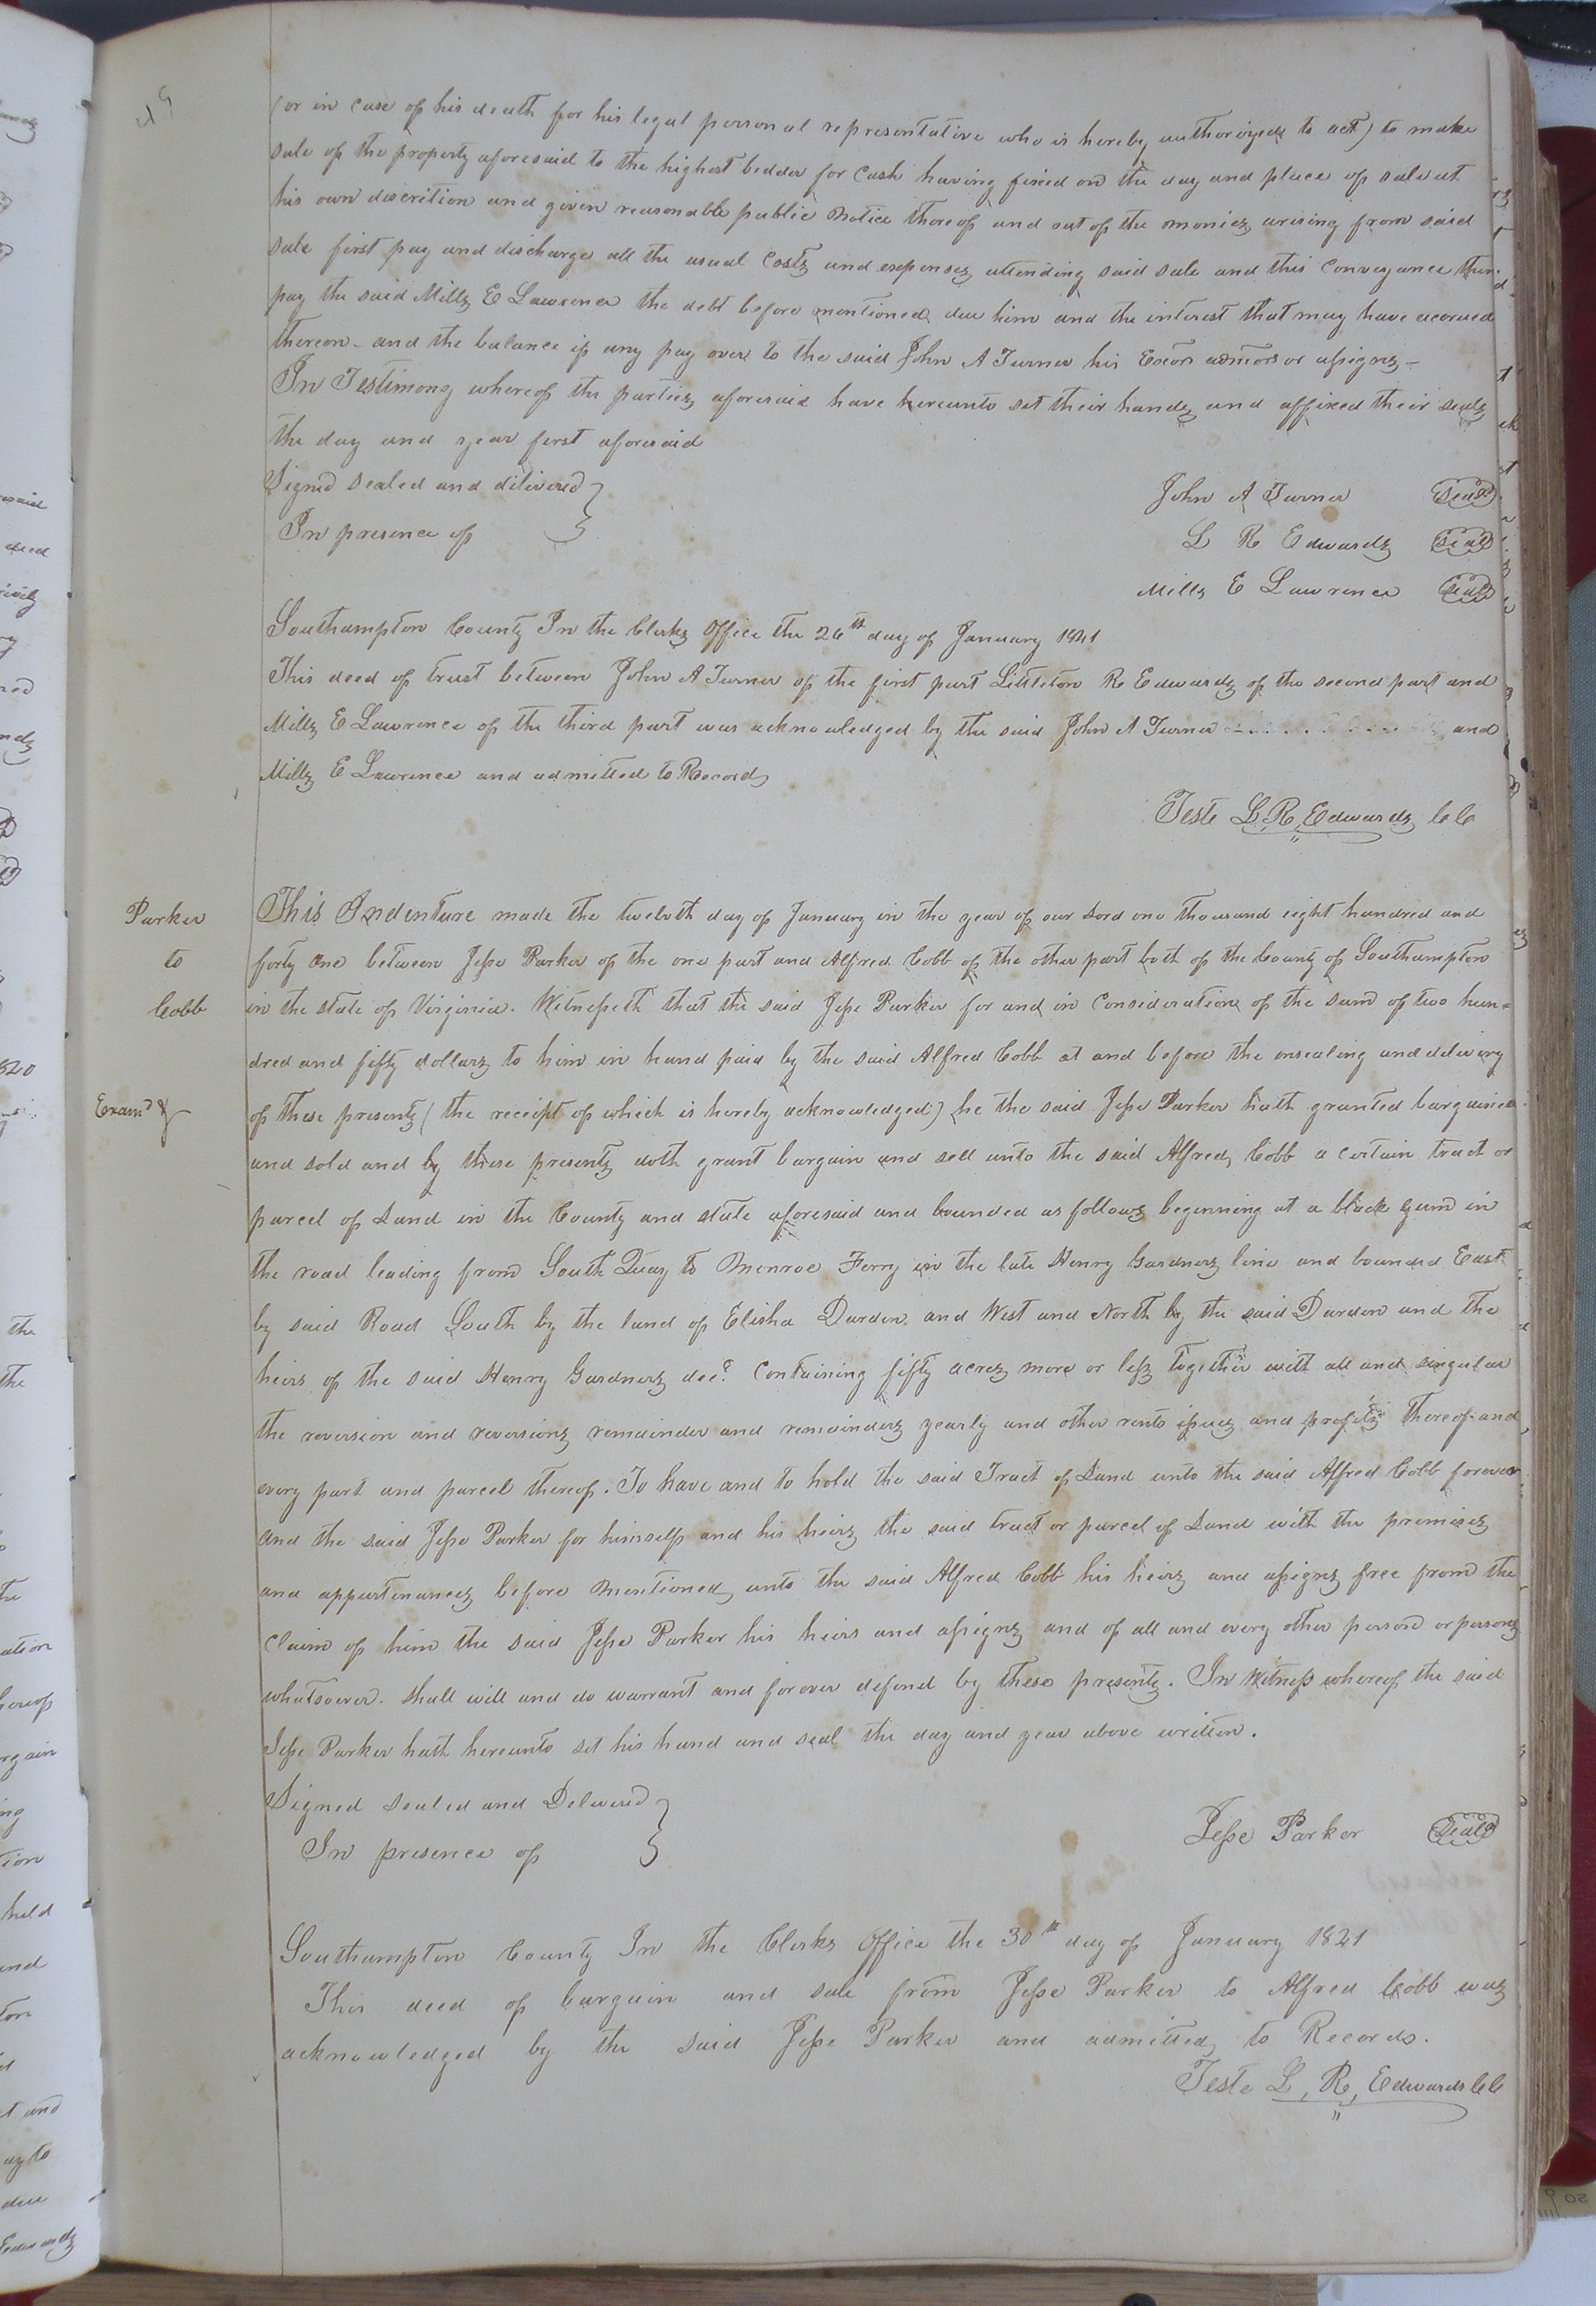 (or in case of his death for his legal personal representative who is hereby authorized to act) to make
sale of the property aforesaid to the highest bedder for Cash having fixed on the day and place of sale at
his own discrition and given reasonable public Notice thereof and out of the monies arising from said
sale first pay and discharge all the usual Costs and expenses attending said sale and this Conveyance then
pay the said Mills E Lawrence the debt before mentioned due him and the interest that may have accrued
thereon - and the balance if any pay over to the said John A Turner his Exors admors or assigns -
In Testimony whereof the parties aforesaid have hereunto set their hands and affixed their seals
the day and year first aforesaid
Signed Sealed and delivered }
In presence of
John A Turner Seal
L R Edwards Seal
Mills E Lawrence Seal
Southampton County In the Clerks Office the 26th day of January 1841
This deed of trust between John A Turner of the first part Littleton R Edwards of the second part and
Mills E Lawrence of the third part was acknowledged by the said John A Turner and
Mills E Lawrence and admitted to Record
Teste L. R. Edwards CC
Parker
to
Cobb
Examd
This Indenture made the twelvth day of January in the year of our Lord one thousand eight hundred and
forty One between Jesse Parker of the one part and Alfred Cobb of the other part both of the County of Southampton
in the state of Virginia. Witnesseth that the said Jesse Parker for and in Consideration of the sum of two hun=
dred and fifty dollars to him in hand paid by the said Alfred Cobb at and before the ensealing and delivery
of these presents (the receipt of which is hereby acknowledged) he the said Jesse Parker hath granted bargained
and sold and by these presents doth grant bargain and sell unto the said Alfred Cobb a certain tract or
parcel of Land in the County and state aforesaid and bounded as follows beginning at a black gum in
the road leading from South Quay to Monroe Ferry in the late Henry Gardners line and bounded East
by said Road South by the land of Elisha Darden and West and North by the said Darden and the
heirs of the said Henry Gardners decd Containing fifty acres more or less together with all and singular
the reversion and reversions remainder and remainders yearly and other rents issues and profits thereof and
every part and parcel thereof. To have and to hold the said Tract of Land unto the said Alfred Cobb forever
and the said Jesse Parker for himself and his heirs the said tract or parcel of Land with the premises
and appurtinances before mentioned unto the said Alfred Cobb his heirs and assigns free from the
Claim of him the said Jesse Parker his heirs and assigns and of all and every other person or persons
whatsoever. shall will and do warrant and forever defend by these presents. In Witness whereof the said
Jesse Parker hath hereunto set his hand and seal the day and year above written.
Signed Sealed and Delivered }
In presence of
Jesse Parker Seal
Southampton County In the Clerks Office the 30th day of January 1841
This deed of bargain and sale from Jesse Parker to Alfred Cobb was
acknowledged by the said Jesse Parker and admitted to Record.
Teste L, R, Edwards CC